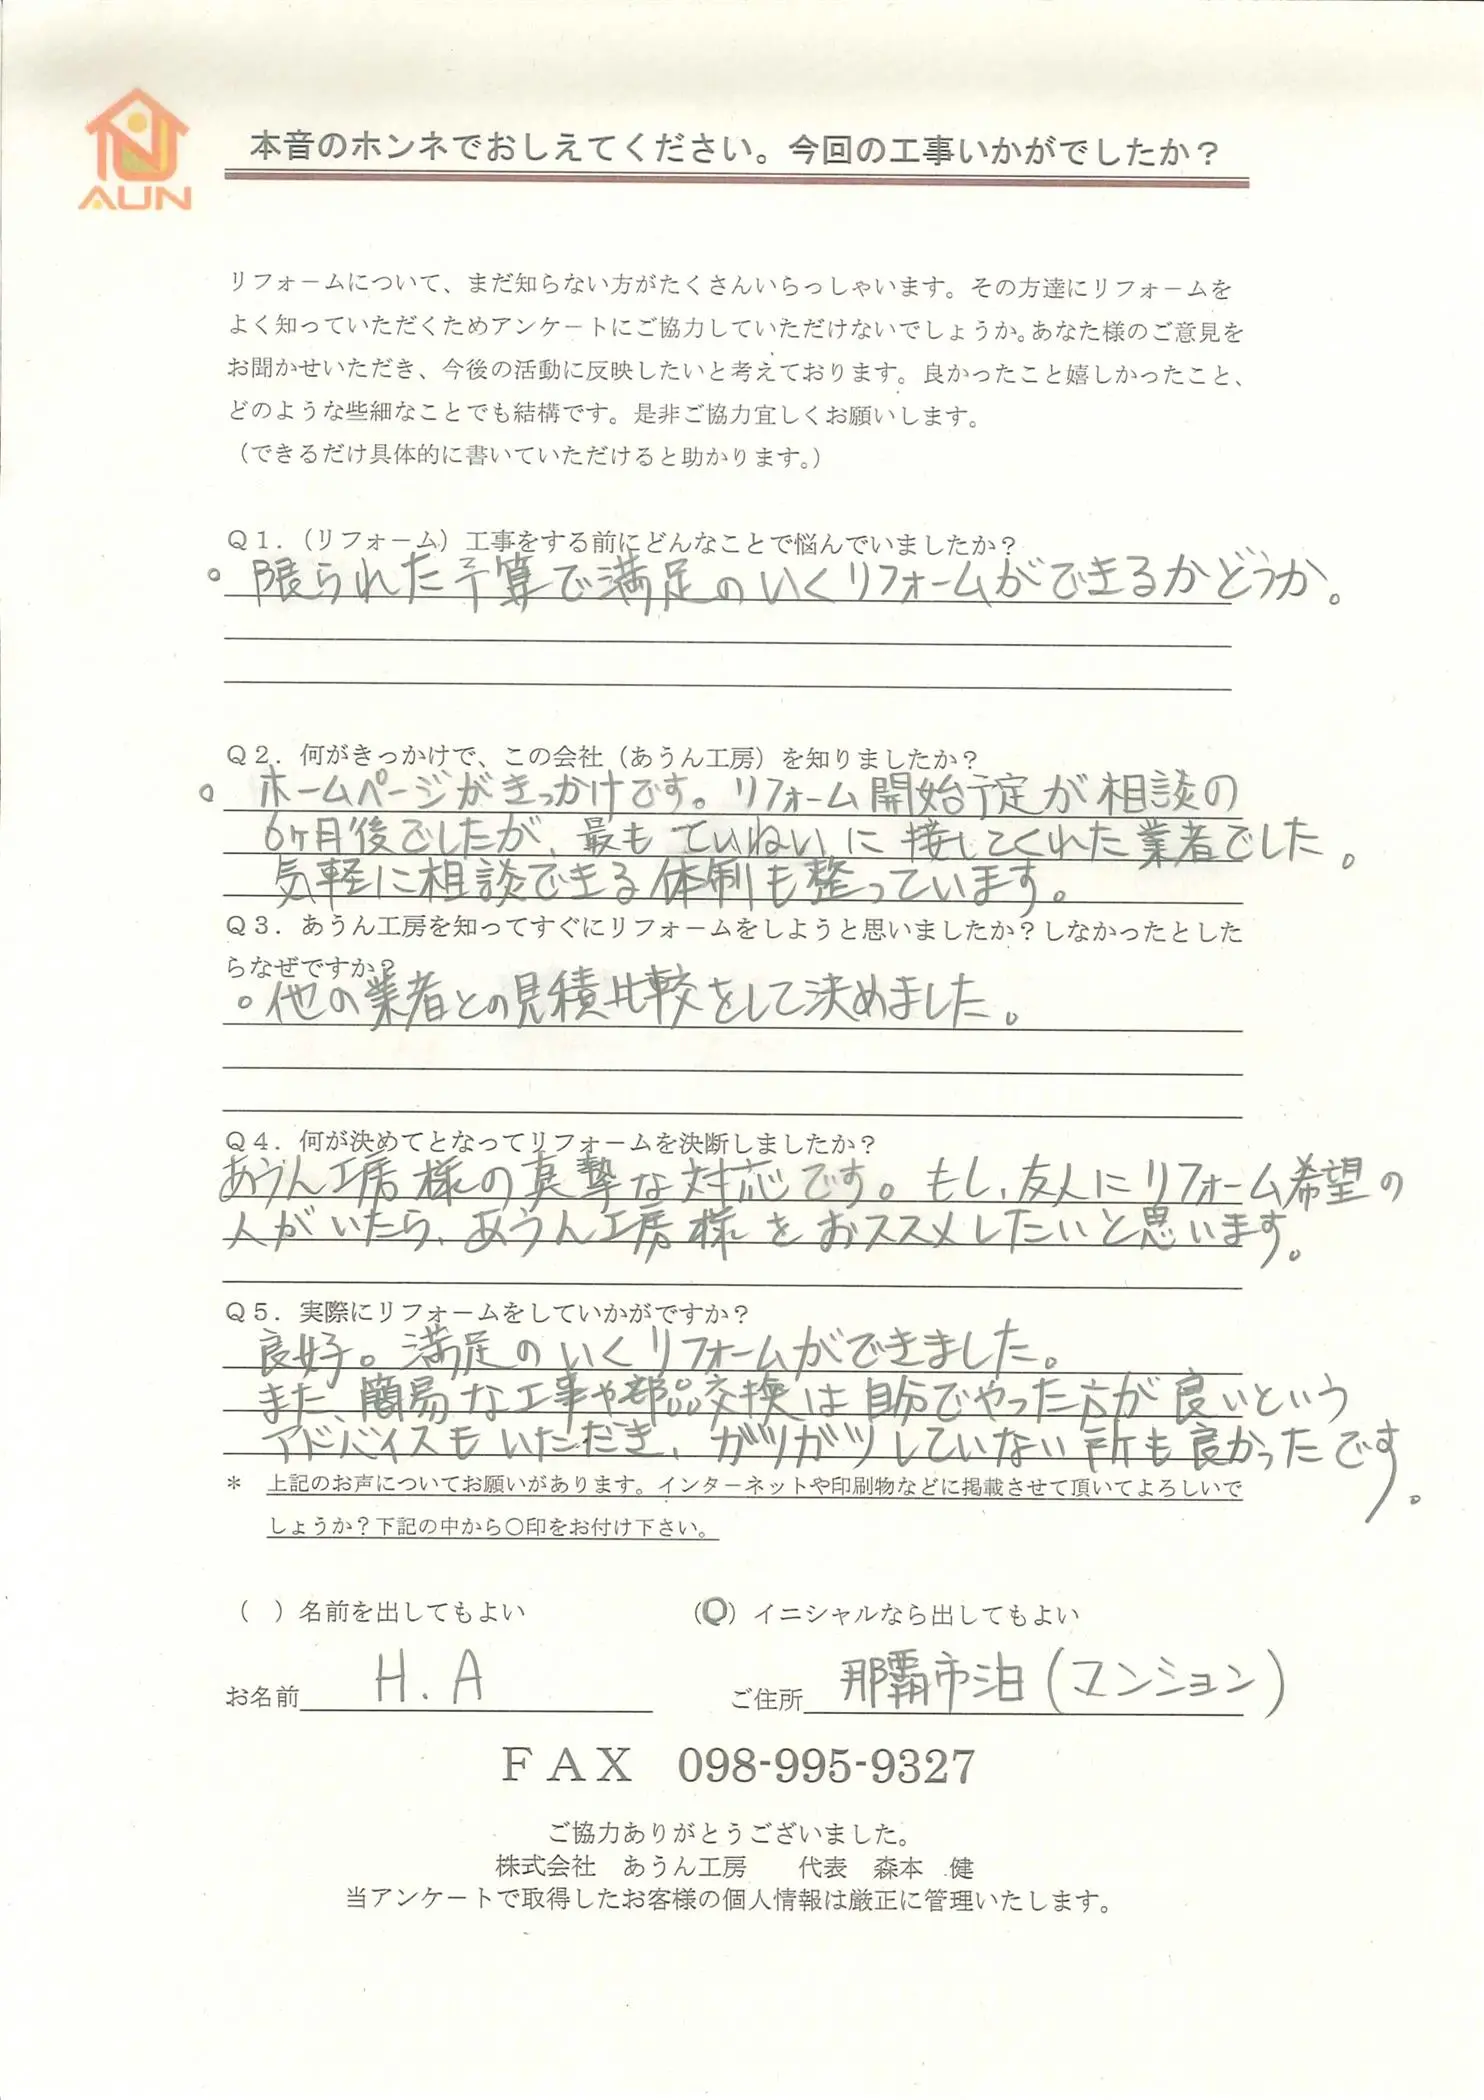 AUN
本音のホンネでおしえてください。今回の工事いかがでしたか？
リフォームについて、まだ知らない方がたくさんいらっしゃいます。その方達にリフォームを
よく知っていただくためアンケートにご協力していただけないでしょうか。あなた様のご意見を
お聞かせいただき、今後の活動に反映したいと考えております。良かったこと嬉しかったこと、
どのような些細なことでも結構です。是非ご協力宜しくお願いします。
（できるだけ具体的に書いていただけると助かります。）
Ｑ１．（リフォーム）工事をする前にどんなことで悩んでいましたか？
。限られた予算で満足のいくリフォームができるかどうか。
Ｑ２．何がきっかけで、この会社（あうん工房）を知りましたか？
。ホームページがきっかけです。リフォーム開始予定が相談の
6ヶ月後でしたが、最もていねいに接してくれた業者でした。
気軽に相談できる体制も整っています。
Ｑ３．あうん工房を知ってすぐにリフォームをしようと思いましたか？しなかったとした
らなぜですか？
。他の業者との見積比較をして決めました。
Ｑ４．何が決めてとなってリフォームを決断しましたか？
あうん工房様の真摯な対応です。もし、友人にリフォーム希望の
人がいたら、あうん工房様をおススメしたいと思います。
Ｑ５．実際にリフォームをしていかがですか？
良好。満足のいくリフォームができました。
また、簡易な工事や部品交換は自分でやった方が良いという
アドバイスもいただき、ガツガツしていない所も良かったです。
＊　上記のお声についてお願いがあります。インターネットや印刷物などに掲載させて頂いてよろしいで
しょうか？下記の中から〇印をお付け下さい。
（　）名前を出してもよい　（〇）イニシャルなら出してもよい
お名前 H.A　ご住所 那覇市泊（マンション）
ＦＡＸ　098-995-9327
ご協力ありがとうございました。
株式会社　あうん工房　　代表　森本　健
当アンケートで取得したお客様の個人情報は厳正に管理いたします。